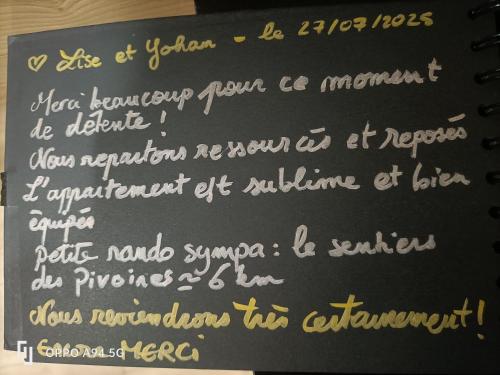 ♡ Lise et Yohan - le 27/07/2025
Merci beaucoup pour ce moment
de détente !
Nous repartons ressourcés et reposés
L'appartement est sublime et bien
équipés
petite rando sympa : le sentiers
des Pivoines ≃ 6 km
Nous reviendrons très certainement !
Encore MERCI
OPPO A94 5G